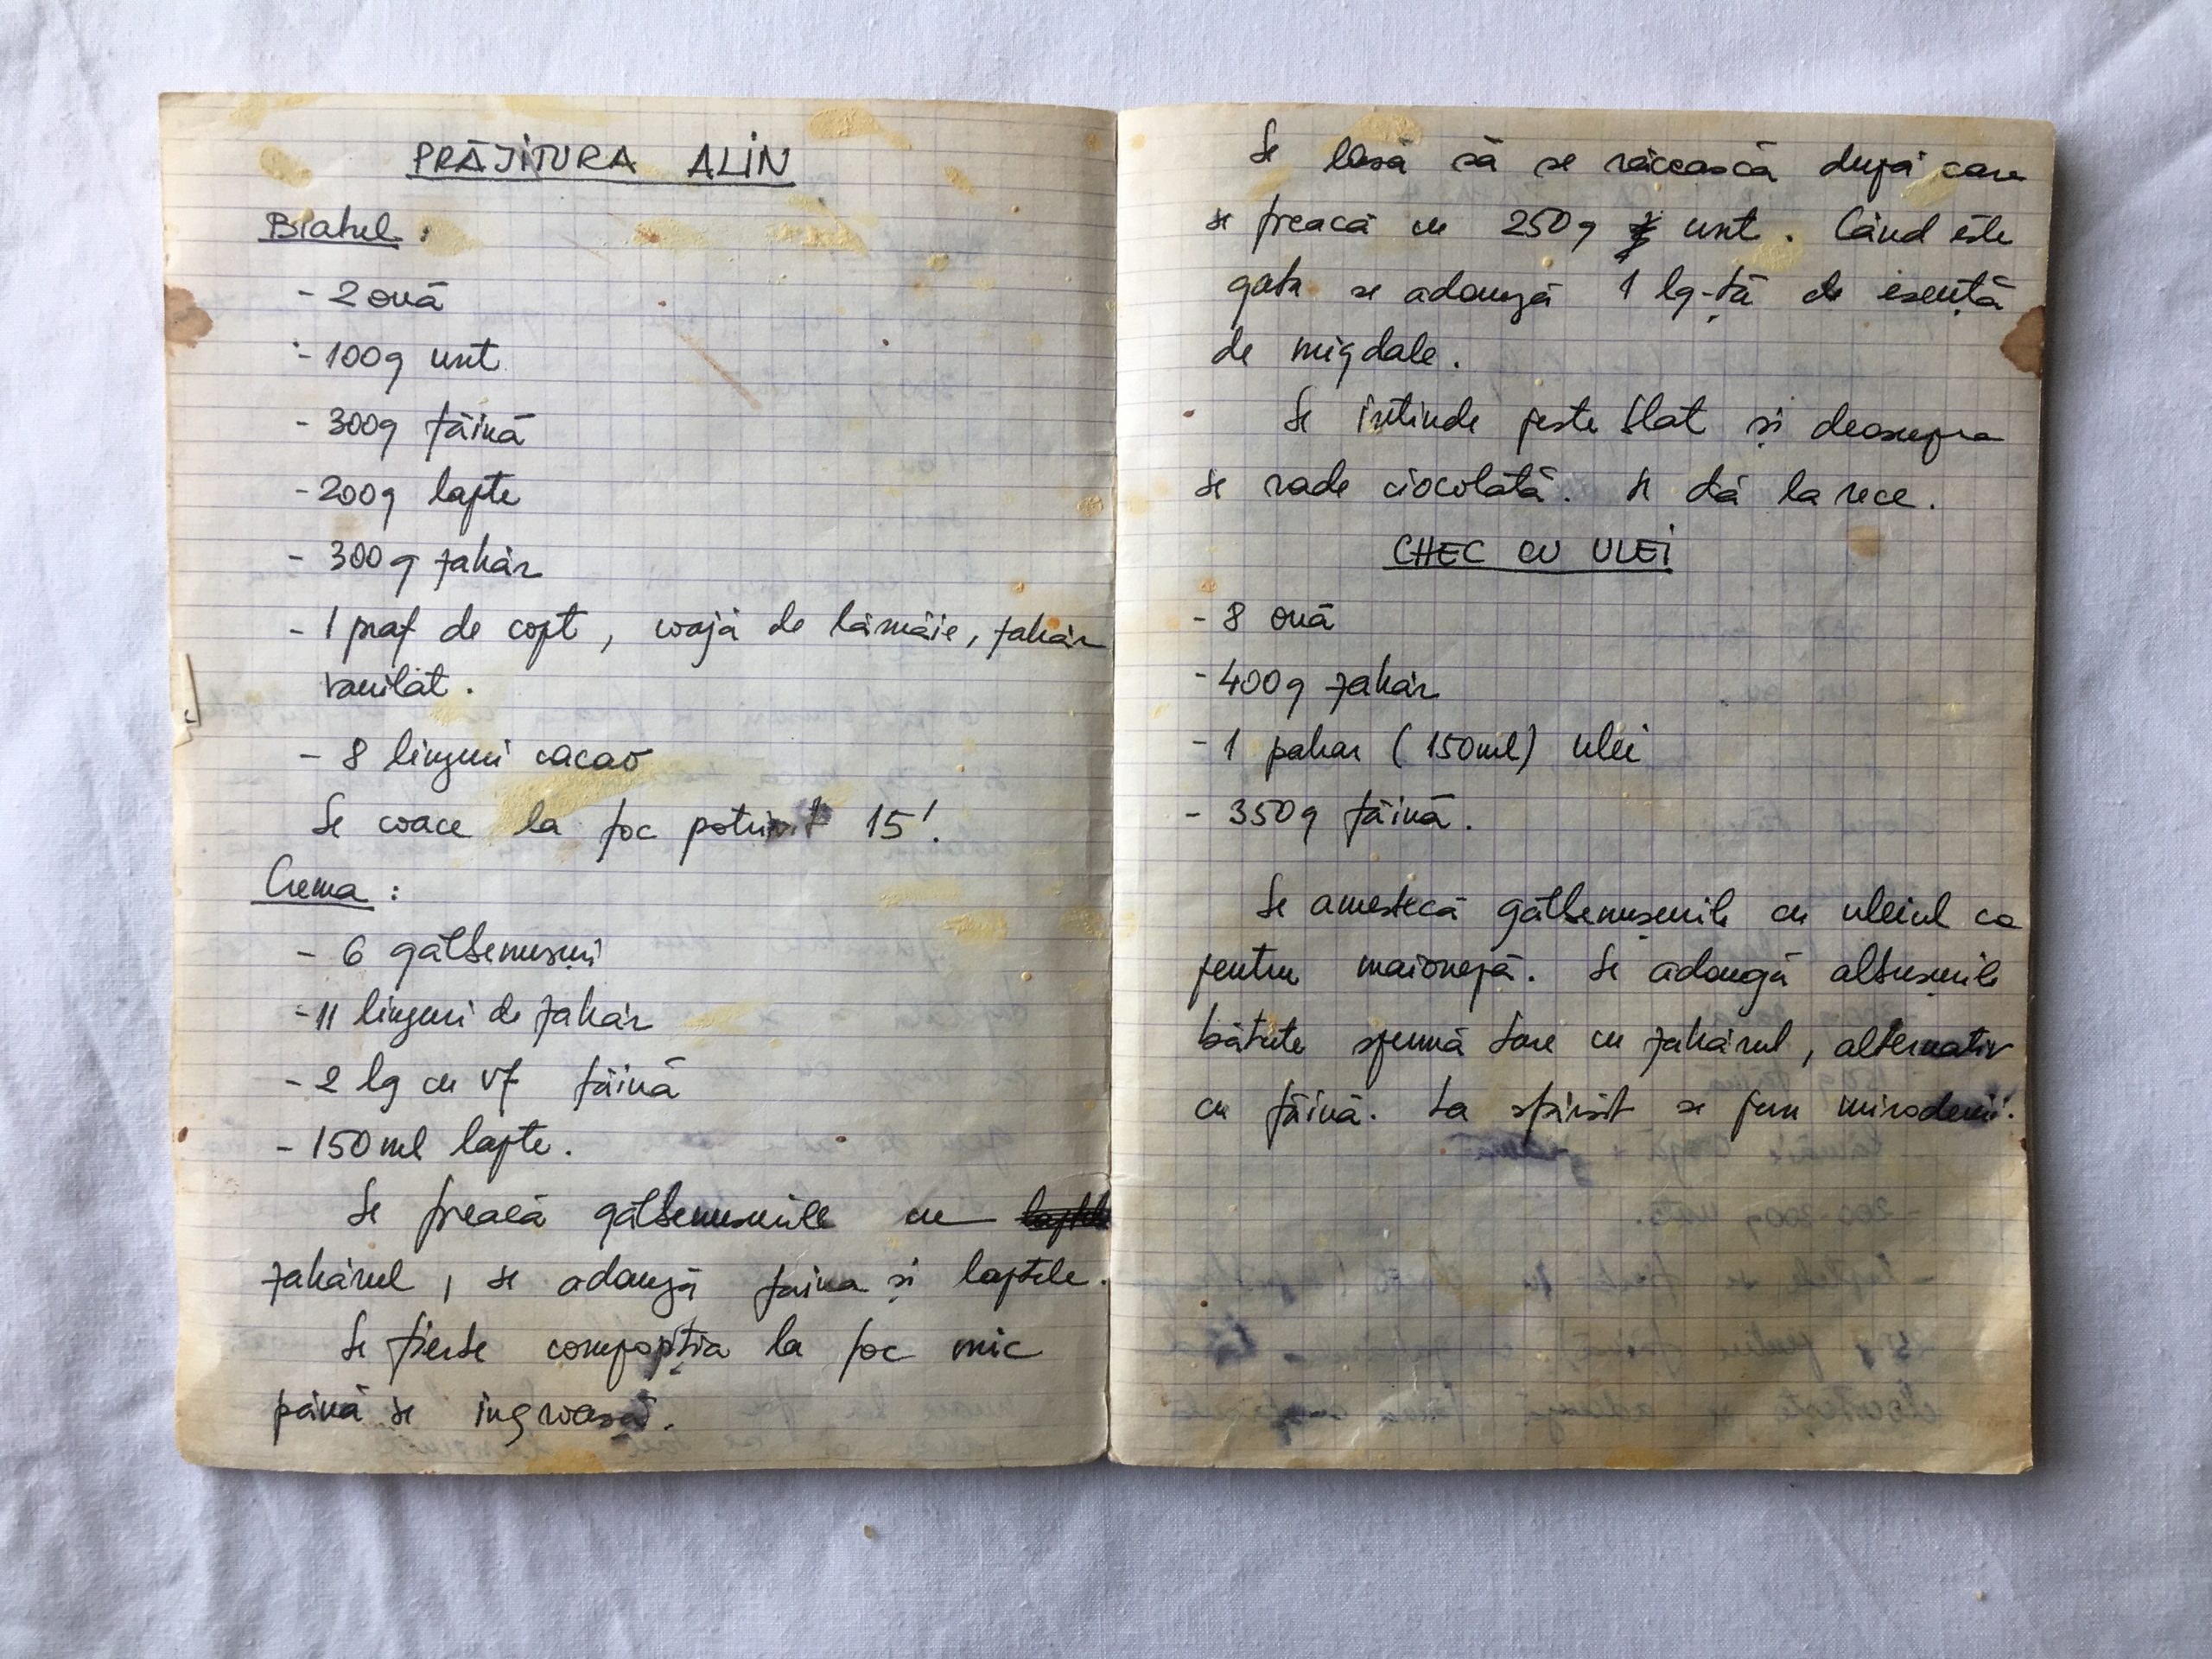 PRĂJITURA ALIN
Blatul :
- 2 ouă
- 100g unt
- 300g făină
- 200g lapte
- 300g zahăr
- 1 praf de copt , coajă de lămâie, zahăr
vanilat .
- 8 linguri cacao
Se coace la foc potrivit 15'.
Crema :
- 6 gălbenușuri
- 11 linguri de zahăr
- 2 lg cu vf făină
- 150ml lapte .
Se freacă gălbenușurile cu laptele
zahărul , se adaugă faina și laptele.
Se fierbe compoziția la foc mic
până se îngroașă.
Se lasă să se răcească după care
se freacă cu 250g unt . Când este
gata se adaugă 1 lg-ță de esență
de migdale .
Se întinde peste blat și deasupra
se rade ciocolată. Se dă la rece .
CHEC CU ULEI
- 8 ouă
- 400g zahăr
- 1 pahar (150ml) ulei
- 350g făină .
Se amestecă gălbenușurile cu uleiul ca
pentru maioneză. Se adaugă albușurile
bătute spumă tare cu zahărul, alternativ
cu făină. La sfârșit se pun mirodenii.